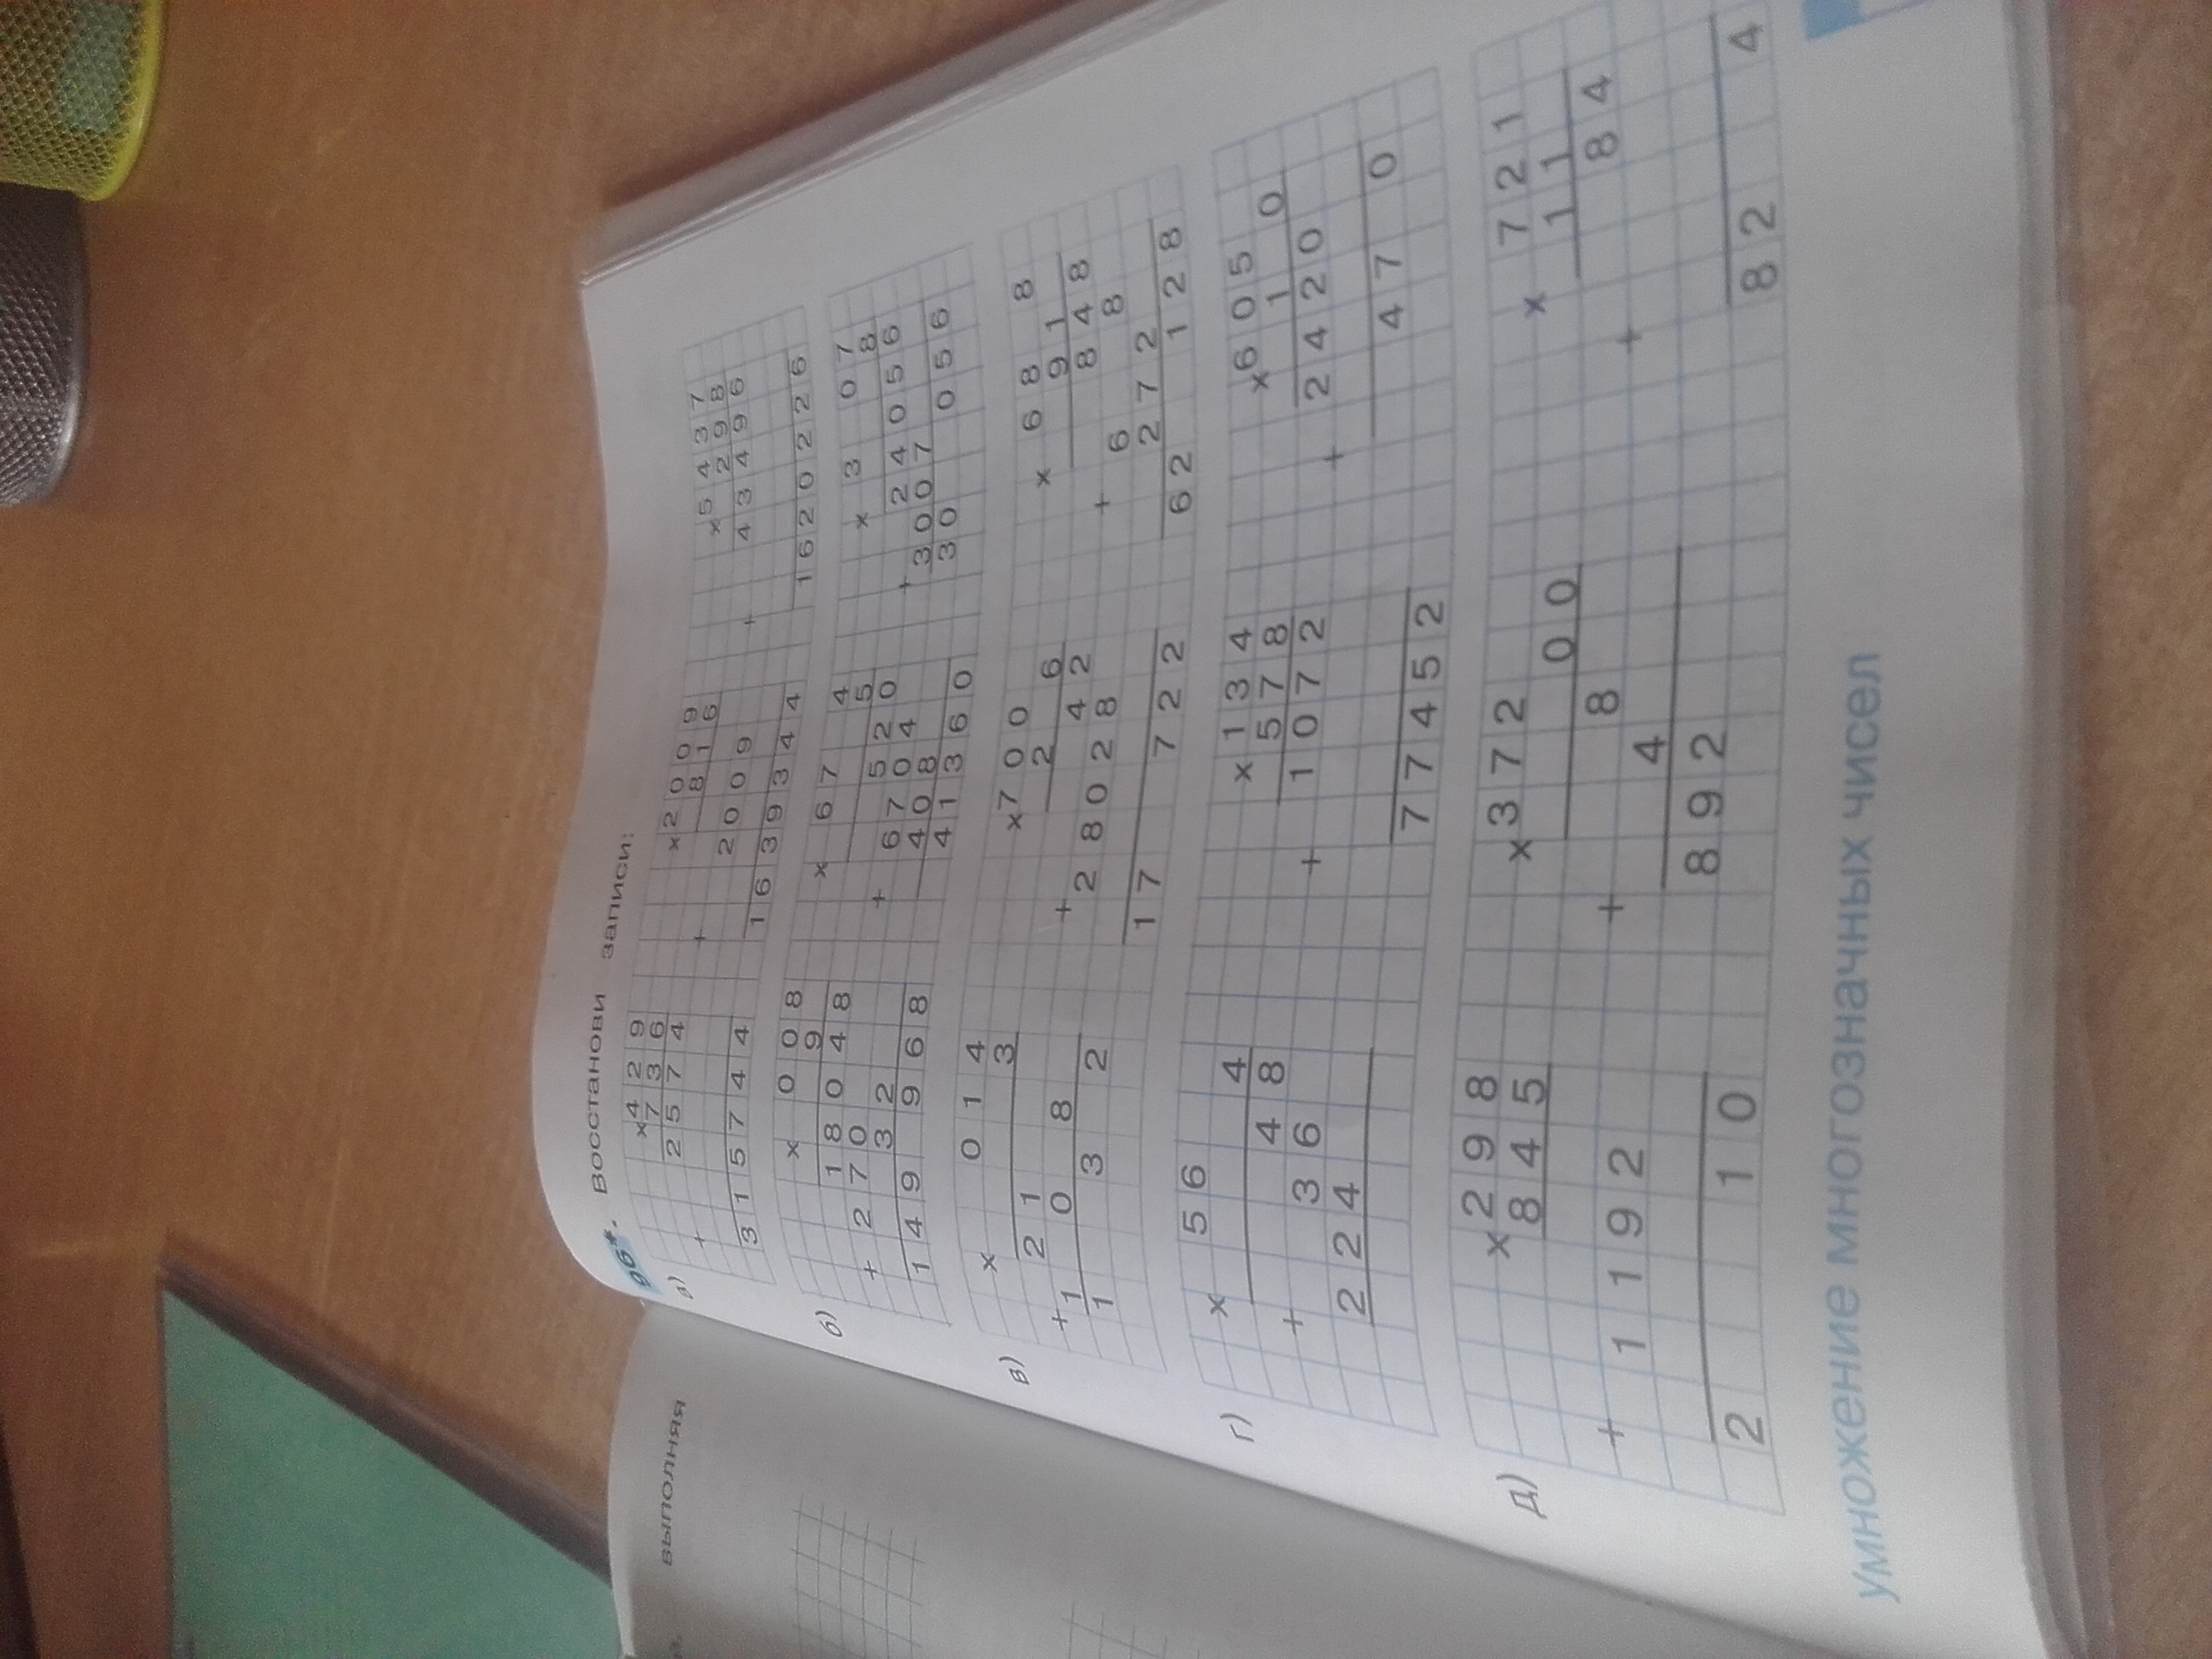 выполняя
96*. Восстанови записи:
а)
×4 2 9
7 3 6
2 5 7 4
+
3 1 5 7 4 4
×2 0 0 9
8 1 6
+
2 0 0 9
1 6 3 9 3 4 4
×5 4 3 7
2 9 8
4 3 4 9 6
+
1 6 2 0 2 2 6
б)
× 0 0 8
9
1 8 0 4 8
+ 2 7 0
3 2
1 4 9 9 6 8
× 6 7 4
5
5 2 0
+ 6 7 0 4
4 0 8
4 1 3 6 0
× 3 0 7
8
2 4 0 5 6
+ 3 0 0 7
3 0 0 5 6
в)
× 0 1 4
3
2 1
+ 1 0 8
1 3 2
×7 0 0
2 6
4 2
+ 2 8 0 2 8
1 7 7 2 2
× 6 8 8
9 1
8 4 8
+ 6 8
2 7 2
6 2 1 2 8
г)
× 5 6
4
4 8
+ 3 6
2 2 4
×1 3 4
5 7 8
1 0 7 2
+
7 7 4 5 2
×6 0 5
1 0
2 4 2 0
+
4 7 0
д)
×2 9 8
8 4 5
+ 1 1 9 2
2 1 0
×3 7 2
0 0
8
+ 4
8 9 2
× 7 2 1
1 1
8 4
+
8 2 4
умножение многозначных чисел